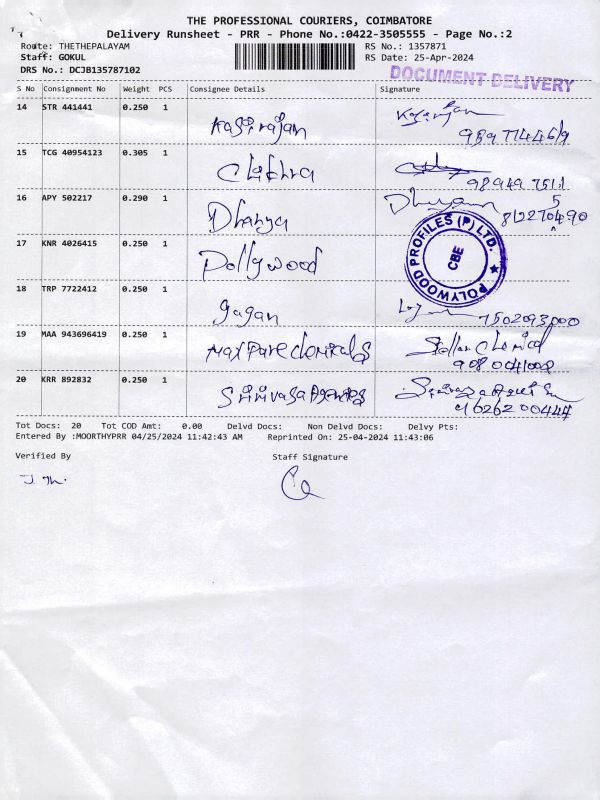 THE PROFESSIONAL COURIERS, COIMBATORE
Delivery Runsheet - PRR - Phone No.:0422-3505555 - Page No.:2
Route: THETHEPALAYAM RS No.: 1357871
Staff: GOKUL RS Date: 25-Apr-2024
DRS No.: DCJB135787102 DOCUMENT DELIVERY
S No Consignment No Weight PCS Consignee Details Signature
14 STR 441441 0.250 1
Kasirajan
15 TCG 40954123 0.305 1
Chithra
16 APY 502217 0.290 1
Dhanya
17 KNR 4026415 0.250 1
Pollywood
POLYWOOD PROFILES (P) LTD. ★ CBE
18 TRP 7722412 0.250 1
gagan 7502093000
19 MAA 943696419 0.250 1
Max Pure chemicals
9080041008
20 KRR 892832 0.250 1
Srinivasa Agencies
Tot Docs: 20 Tot COD Amt: 0.00 Delvd Docs: Non Delvd Docs: Delvy Pts:
Entered By :MOORTHYPRR 04/25/2024 11:42:43 AM Reprinted On: 25-04-2024 11:43:06
Verified By Staff Signature